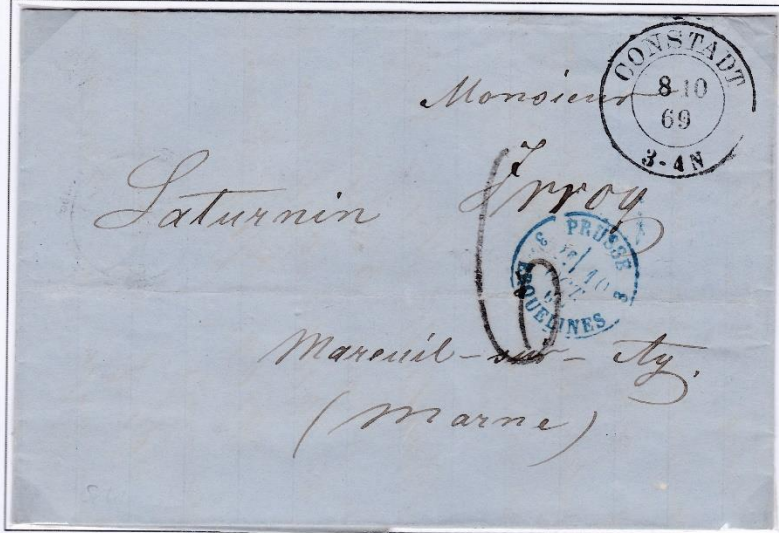 CONSTADT
8 10
69
3-4N
Monsieur
Saturnin Irroy
3 PRUSSE 3
10
OCT
ERQUELINES
6
Mareuil-sur-Ay.
(Marne)